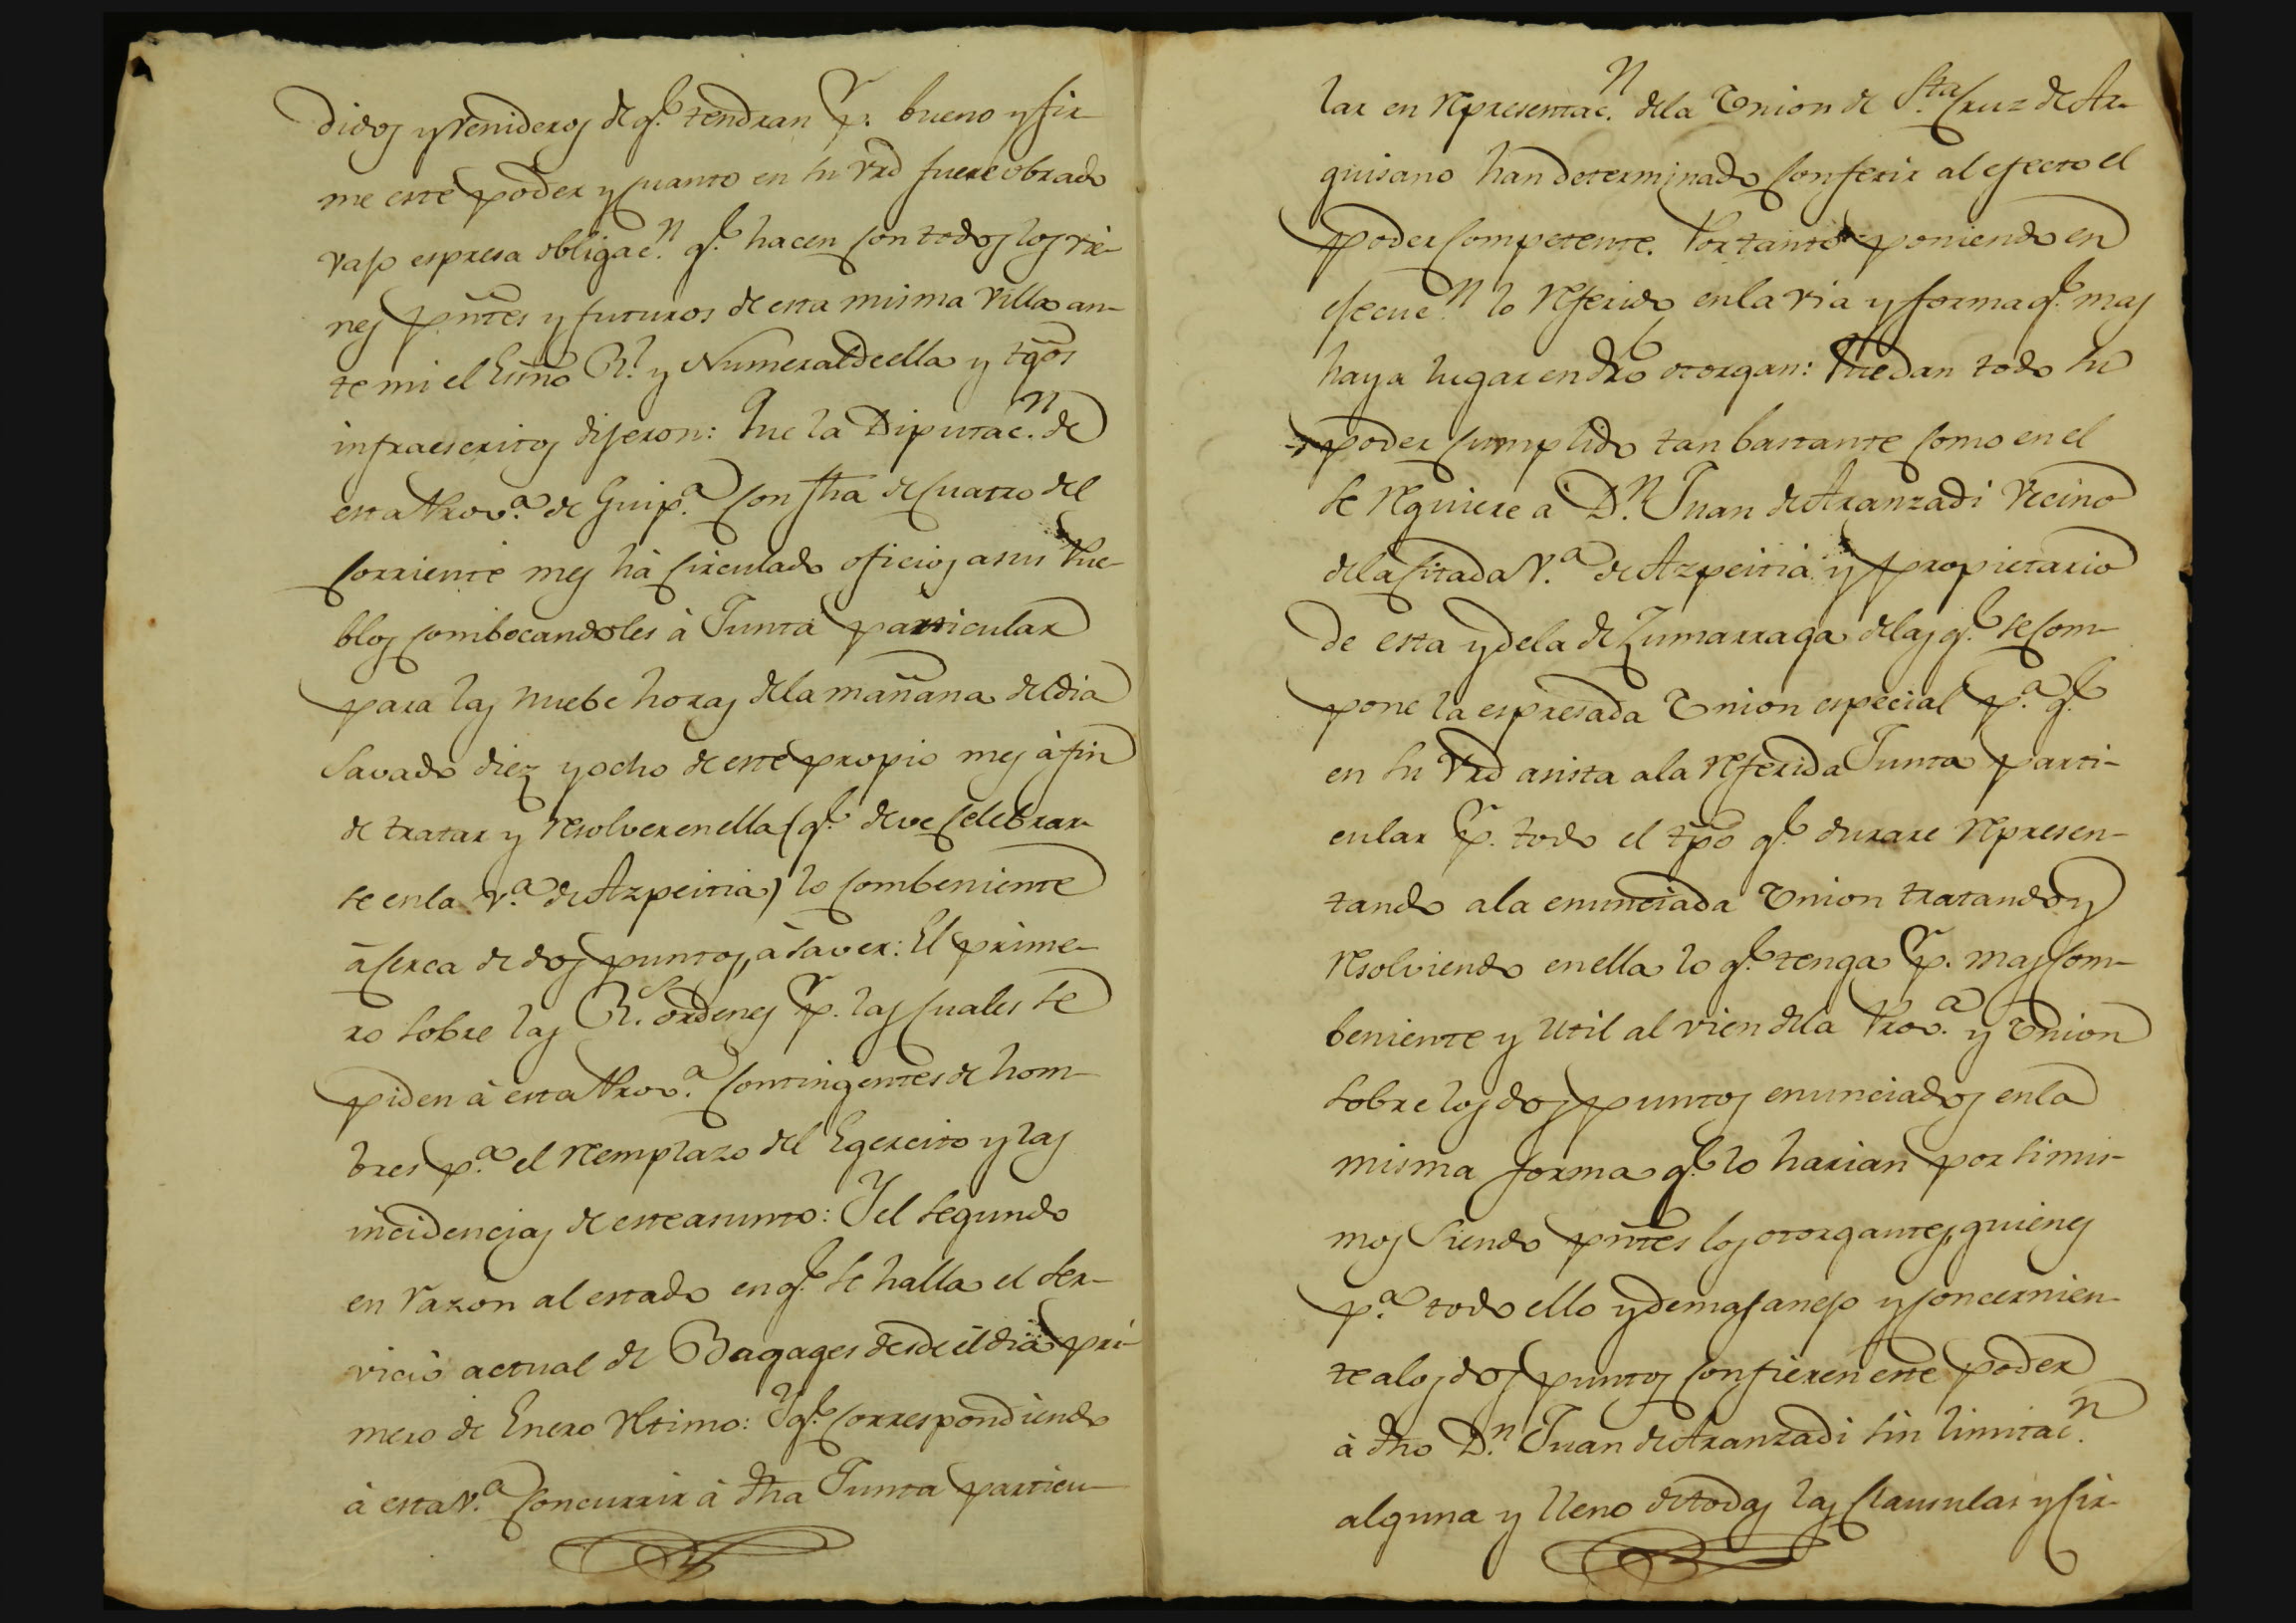 didos y venideros de q.e tendran p.r bueno y fir-
me este poder y cuanto en su vrd fuere obrado
vajo espresa obligac.n q.e hacen con todos los vie-
nes pntes y futuros de esta misma Villa an-
te mi el Esno R.l y Numeral de ella y tgos
infraescritos dijeron: Que la Diputac.n de
esta Prov.a de Guip.a con fha de cuatro del
corriente mes há circulado oficios a sus Pue-
blos combocandoles à Junta particular
para las nuebe horas de la mañana del dia
Savado diez y ocho de este propio mes à fin
de tratar y resolver en ella (q.e deve celebrar-
se en la V.a de Azpeitia) lo combeniente
àcerca de dos puntos, à saver: El prime-
ro sobre las R.s ordenes p.r las cuales se
piden à esta Prov.a contingentes de hom-
bres p.a el reemplazo del Egercito y las
incidencias de este asunto: Y el segundo
en razon al estado en q.e se halla el ser-
vicio actual de Bagages desde el dia pri-
mero de Enero ultimo: Y q.e correspondiendo
à esta V.a concurrir à dha Junta particu-
lar en representac.n de la Union de S.ta Cruz de Ar-
guisano han determinado conferir al efecto el
poder competente. Por tanto poniendo en
ejecuc.n lo referido en la via y forma q.e mas
haya lugar en dro otorgan: Que dan todo su
poder cumplido tan bastante como en el
se requiere à D.n Juan de Aranzadi Vecino
de la citada V.a de Azpeitia y propietario
de esta y de la de Zumarraga de las q.e se com-
pone la espresada Union especial p.a q.e
en su vrd asista a la referida Junta parti-
cular p.r todo el tpo q.e durare represen-
tando a la enunciada Union tratando y
resolviendo en ella lo q.e tenga p.r mas com-
beniente y util al vien de la Prov.a y Union
sobre los dos puntos enunciados en la
misma forma q.e lo harian por si mis-
mos siendo pntes los otorgantes, quienes
p.a todo ello y demas anejo y concernien-
te a los dos puntos confieren este poder
à dho D.n Juan de Aranzadi sin limitac.n
alguna y lleno de todas las clausulas y cir-